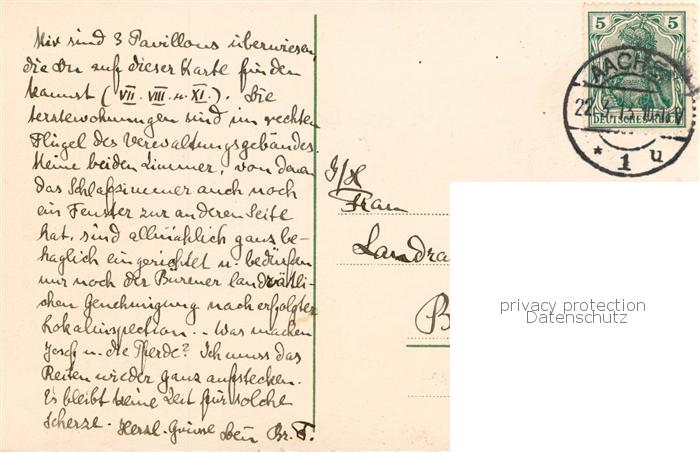 Mir sind 3 Pavillons überwiesen,
die Du auf dieser Karte finden
kannst (VII. VIII. u. XI.). Die
Ärztewohnungen sind im rechten
Flügel des Verwaltungsgebäudes.
Meine beiden Zimmer, von denen
das Schlafzimmer auch noch
ein Fenster zur anderen Seite
hat, sind allmählich ganz be-
haglich eingerichtet u. bedürfen
nur noch der Bürener landrätli-
chen Genehmigung nach erfolgter
Lokalinspection. - Was machen
Josef u. die Pferde? Ich muss das
Reiten wieder ganz aufstecken.
Es bleibt keine Zeit für solche
Scherze. Herzl. Grüsse Dein Br. F.
5 5
AACHEN
22. 3
DEUTSCHES REICH
* 1 u
Frau
Landra
B
privacy protection
Datenschutz